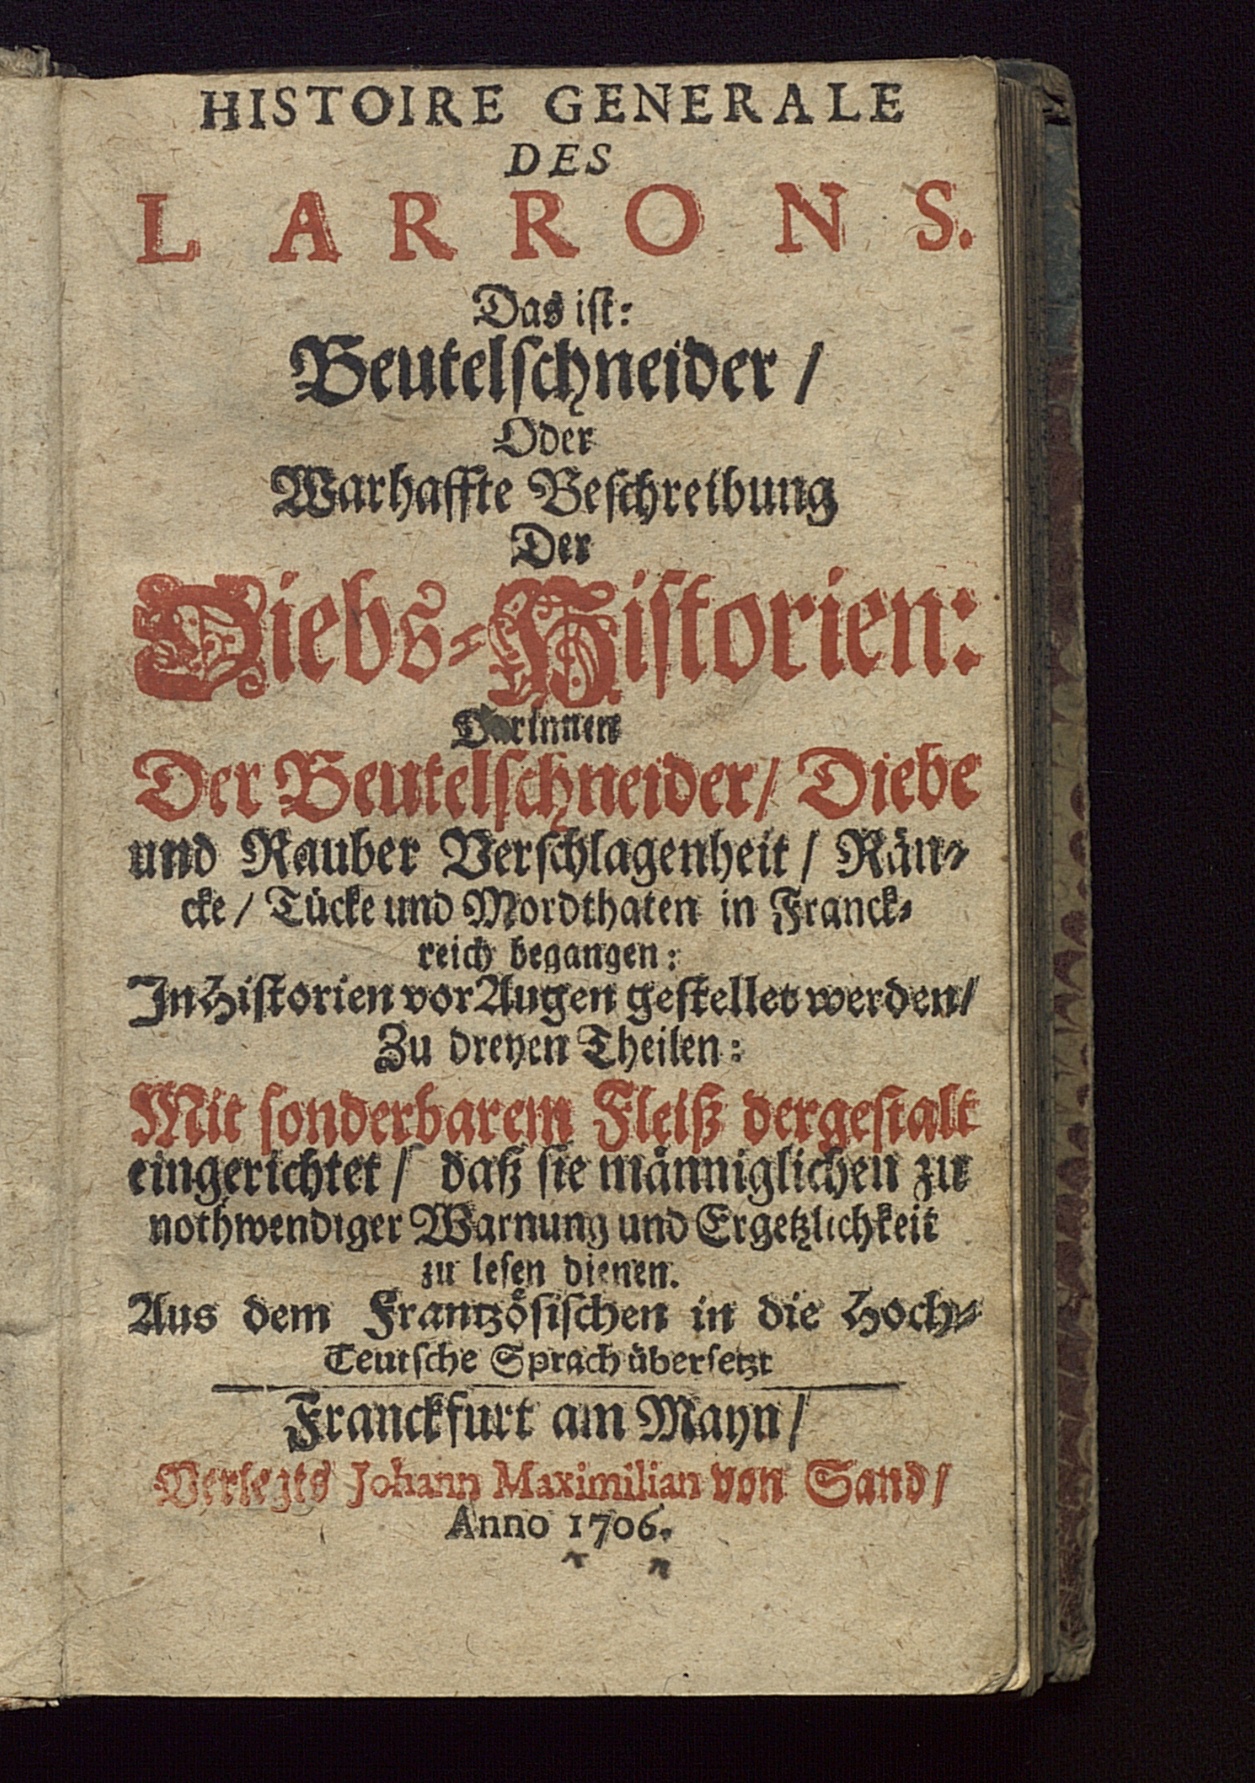 HISTOIRE GENERALE
DES
LARRONS.
Das ist:
Beutelschneider /
Oder
Warhaffte Beschreibung
Der
Diebs-Historien:
Darinnen
Der Beutelschneider / Diebe
und Rauber Verschlagenheit / Rän-
cke / Tücke und Mordthaten in Franck-
reich begangen:
In Historien vor Augen gestellet werden /
Zu dreyen Theilen:
Mit sonderbarem Fleiß dergestalt
eingerichtet / daß sie männiglichen zu
nothwendiger Warnung und Ergetzlichkeit
zu lesen dienen.
Aus dem Frantzösischen in die Hoch-
Teutsche Sprach übersetzt
Franckfurt am Mayn /
Verlegts Johann Maximilian von Sand /
Anno 1706.